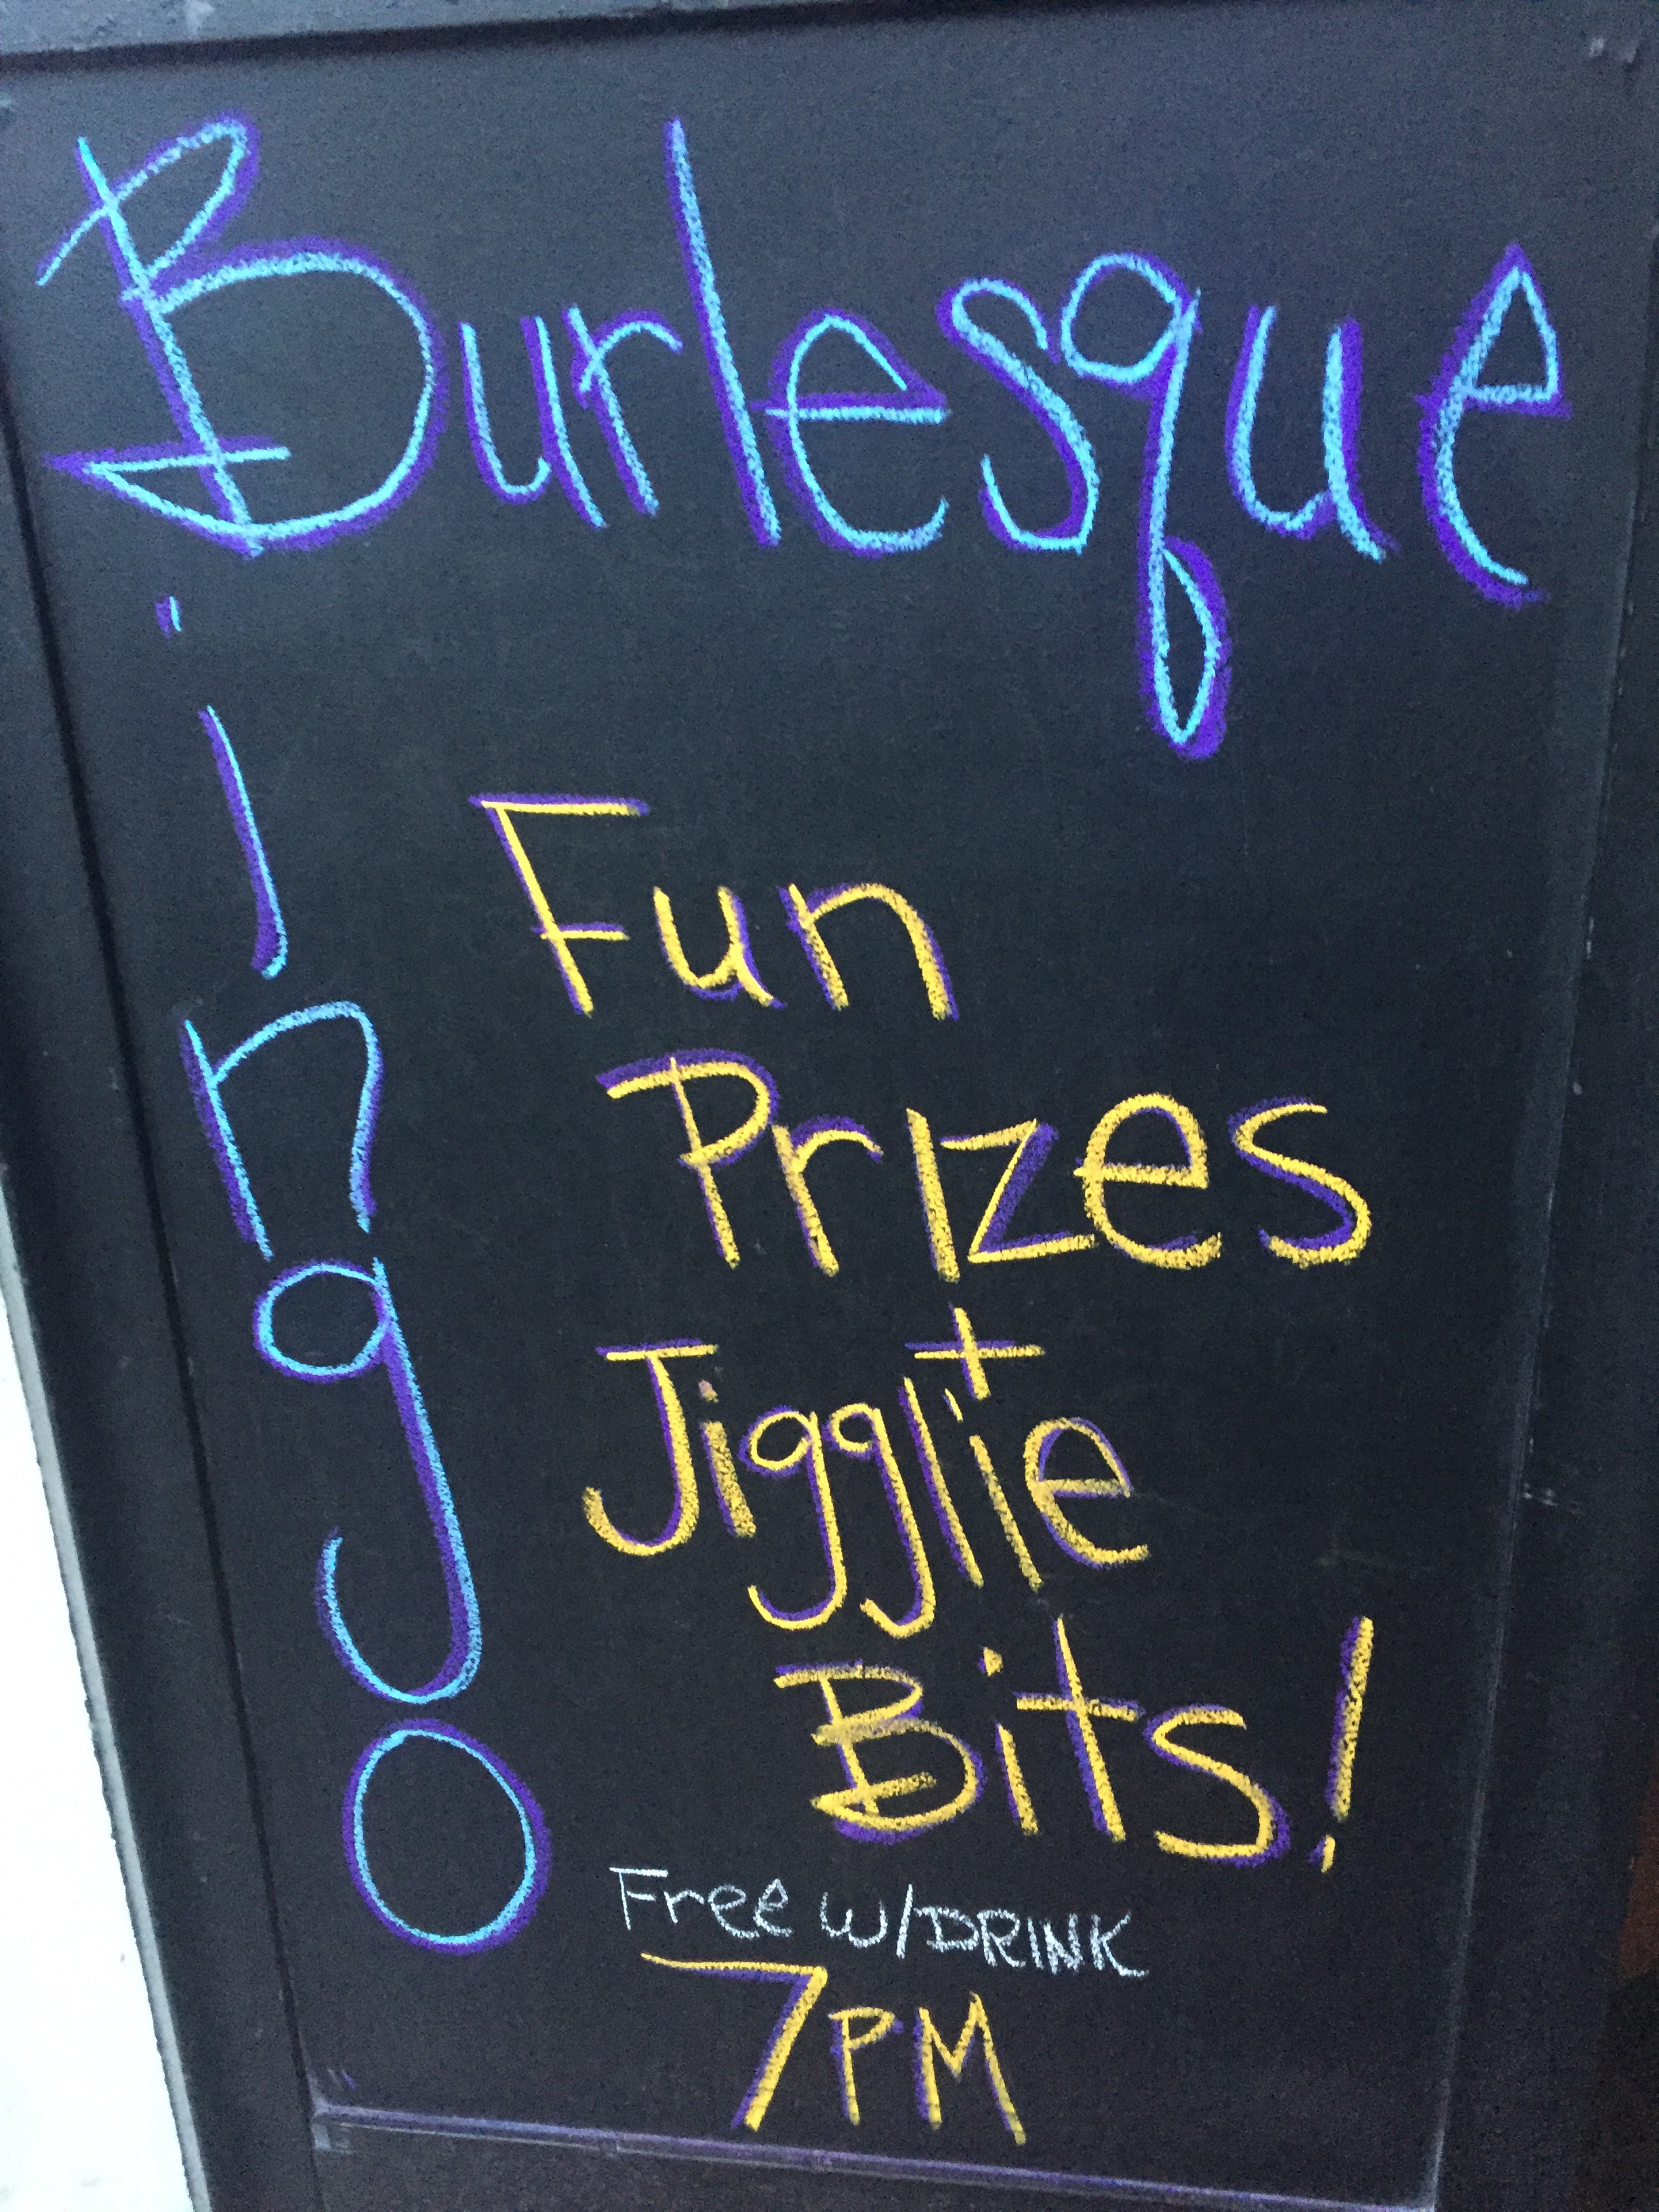 Burlesque
Bingo
Fun
Prizes
+
Jigglie
Bits!
Free w/DRINK
7PM